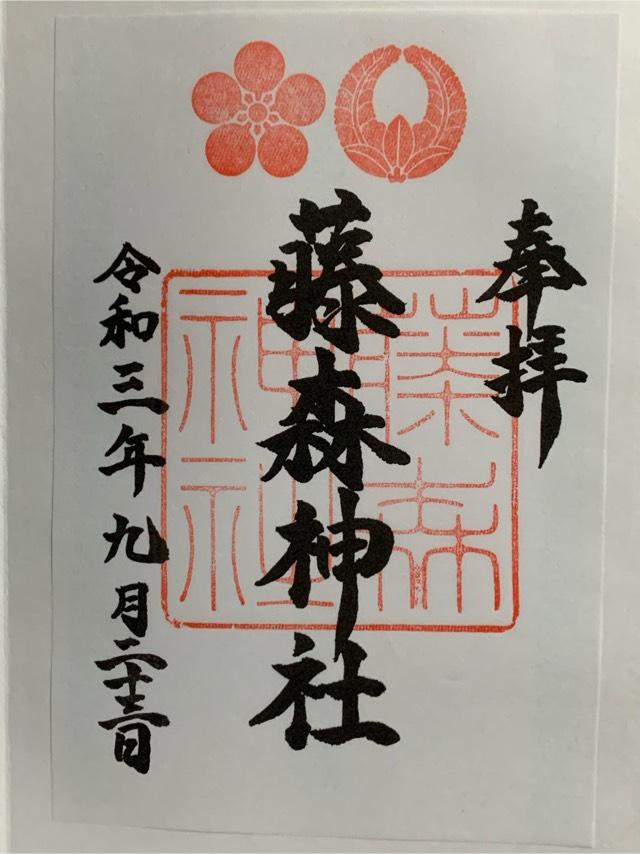 奉拝
藤森神社
藤森神社
令和三年九月二十三日